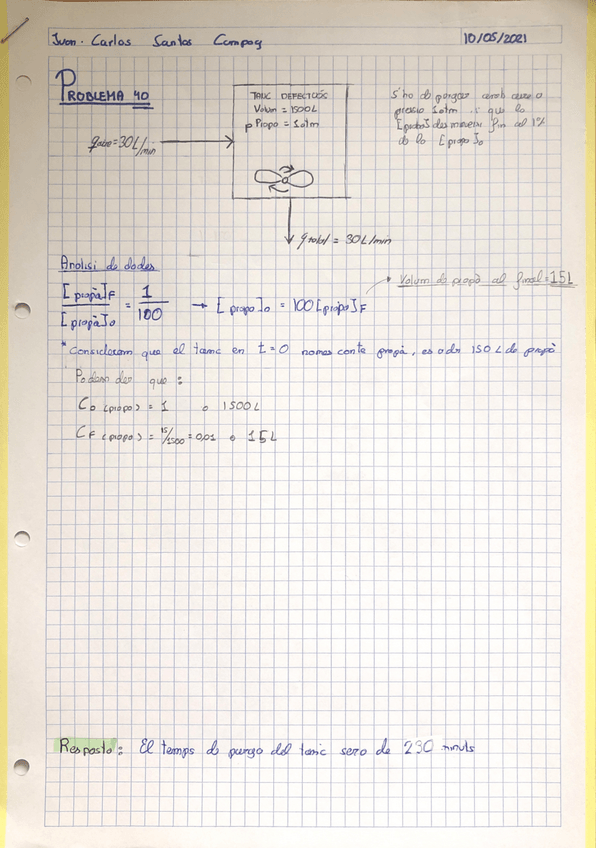 Juan Carlos Santos Campoy
10/05/2021
PROBLEMA 40
TANC DEFECTUÓS
Volum = 1500L
p Propà = 1atm
S'ha de purgar amb aire a
pressió 1atm
que la
[propà] disminueixi fins al 1%
de la [propà]o
qaire = 30L/min
q total = 30L/min
Anàlisi de dades
Volum de propà al final = 15L
[propà]F / [propà]o = 1 / 100 → [propà]o = 100[propà]F
* Considerem que el tanc en t=0 només conté propà, es a dir 150 L de propà
Podem dir que :
Co (propà) = 1 o 1500L
CF (propà) = 15/1500 = 0,01 o 15L
Resposta: El temps de purga del tanc serà de 230 minuts